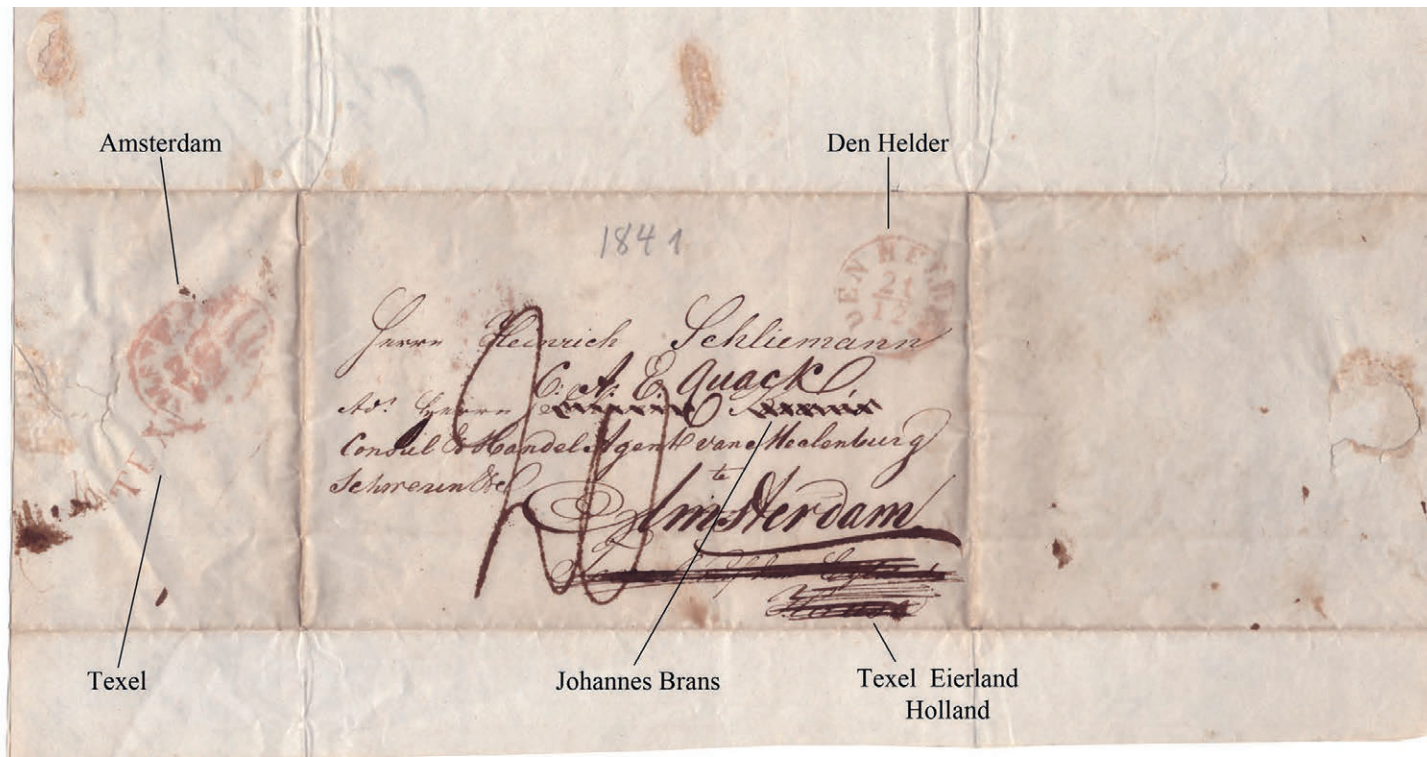 Amsterdam
Den Helder
1841
DEN HELDER
21
12
Herrn Heinrich Schliemann
C. A. E. Quack
Adr Herrn
Consul & Handel Agent van Mecklenburg
Schwerin &c
te
Amsterdam
Texel
Johannes Brans
Texel Eierland
Holland